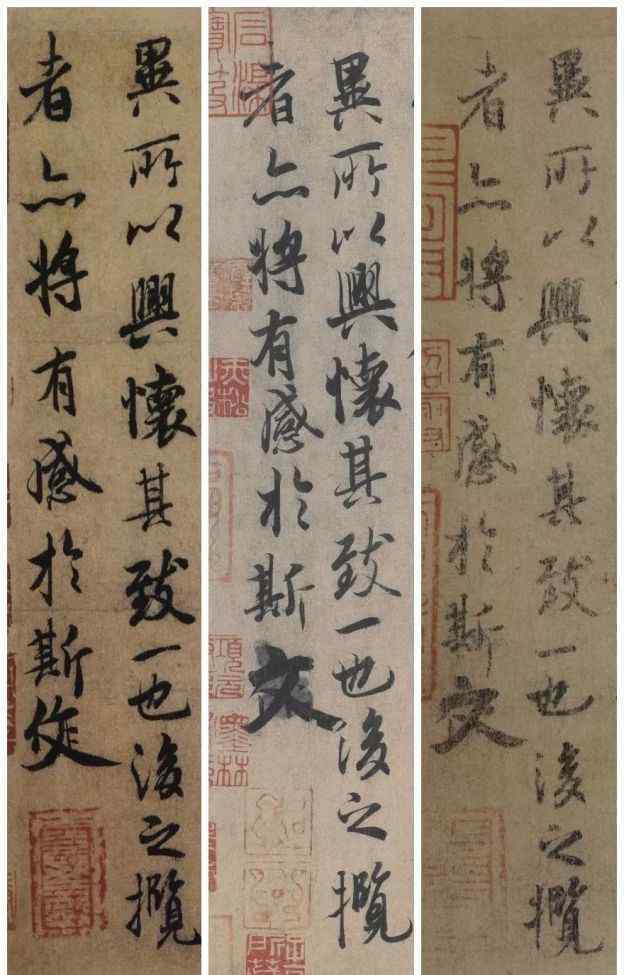 異所以興懷其致一也後之攬
者亦將有感於斯作
異所以興懷其致一也後之攬
者亦將有感於斯文
異所以興懷其致一也後之攬
者亦將有感於斯文